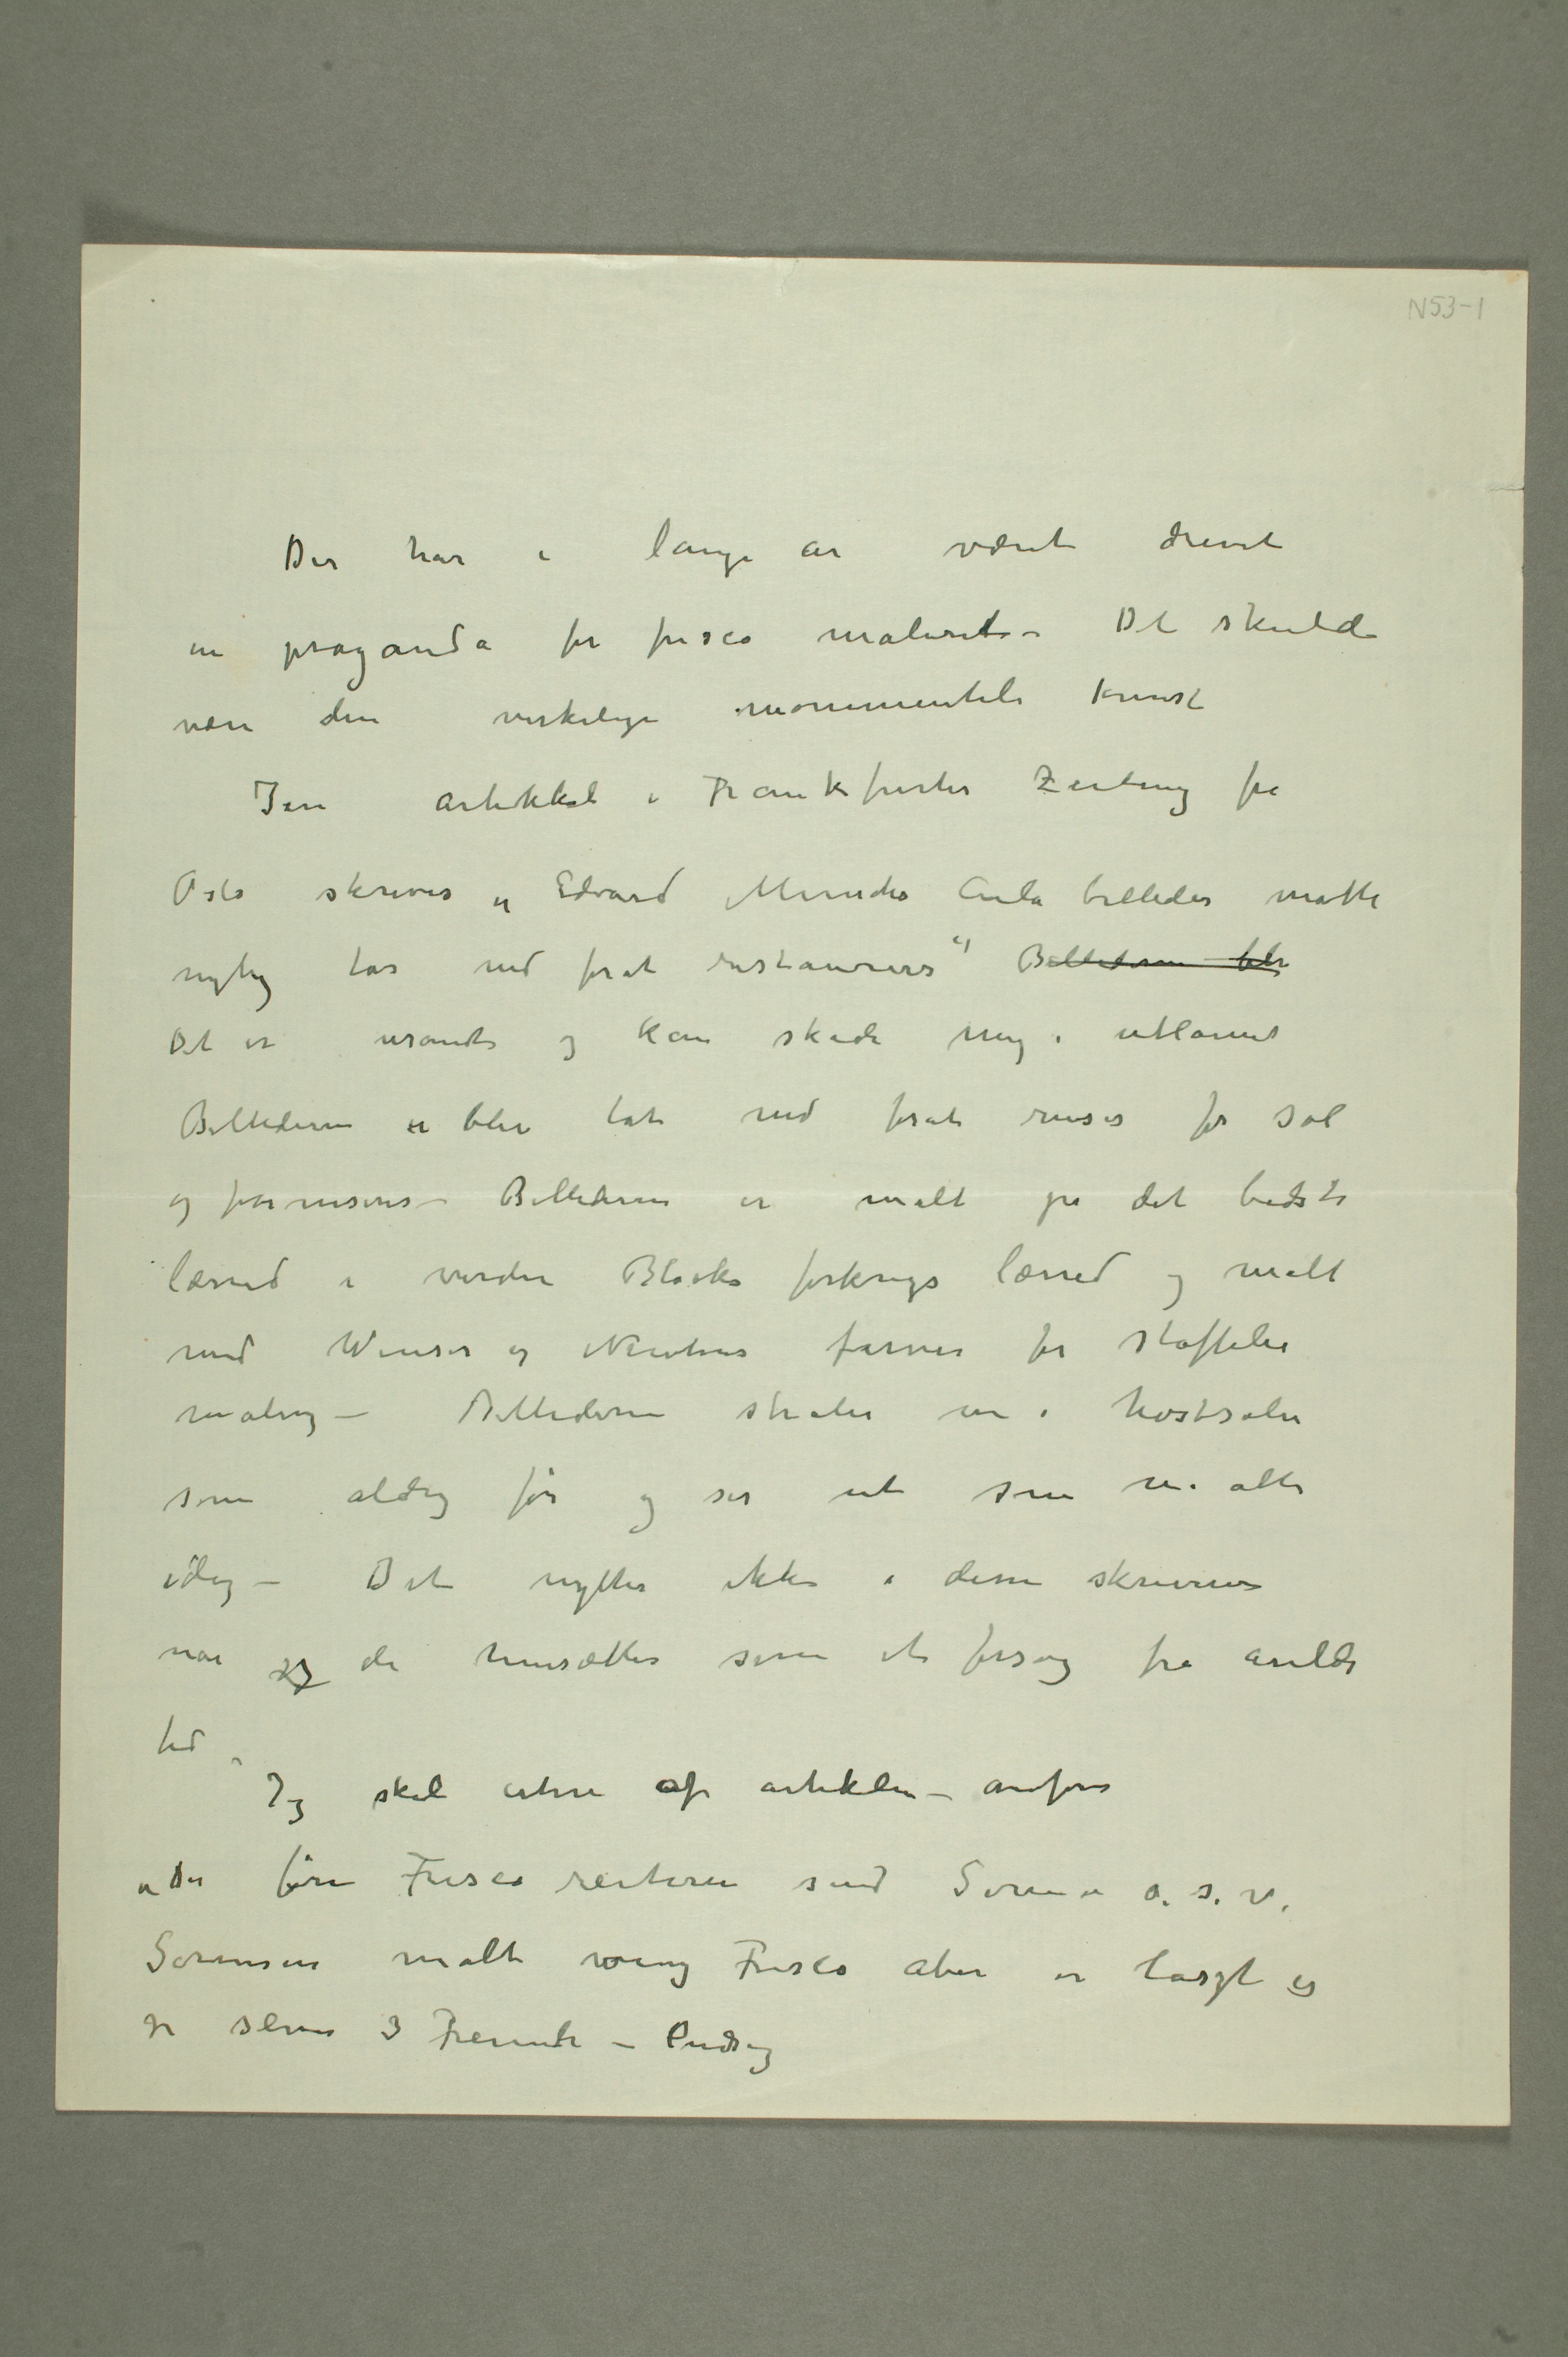 N53-1
Der har i lange år været drevet
en praganda for fresco maleriet – Det skulde
være den virkelige monumentale kunst
I en artikkel i Frankfurter Zeitung fra
Oslo skrives „Edvard Munchs Aula billeder måtte
nylig tas ned forat restaureres" Billederne blev
Det er usandt og kan skade mig i utlandet
Billederne er blev tat ned forat renses for sol
og ferniseres – Billederne er malt på det bedste
lærred i verden Blocks førkrigs lærred og malt
med Winsor og Newtons farver for staffeli
maling – Billederne stråler nu i høstsolen
som aldrig før og ser ut som malte
idag – Det nytter ikke i denne skriverier
når jeg de hensættes som et forsøg fra arilds
tid
Jeg skal citere af artiklen – anføres
„Der føre Fresco reiteren sind Sørensen o. s. v.
Sørensen malt wenig Fresco aber er laszt es
for seine 3 Freunde – Endsig